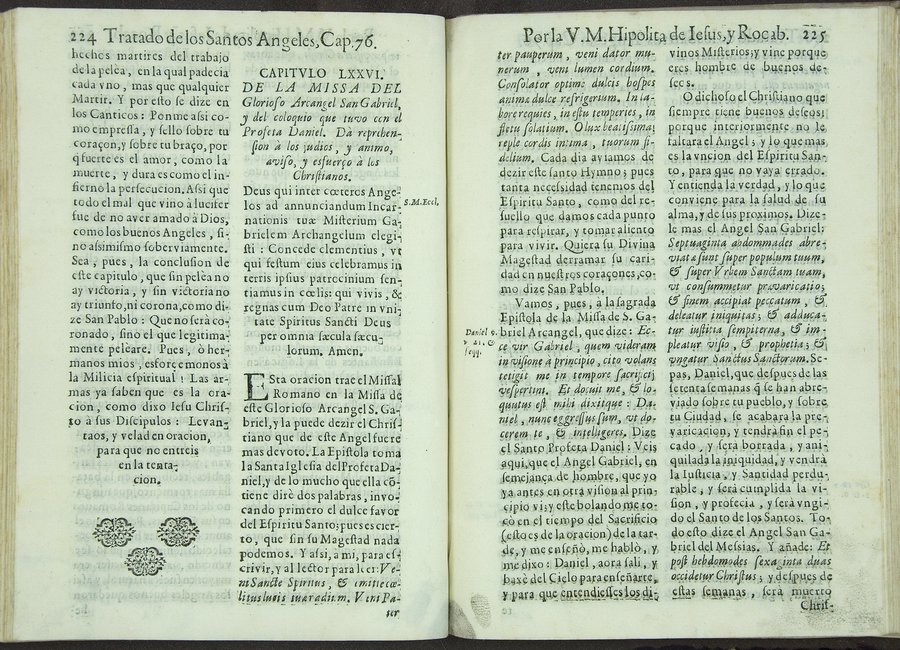 224 Tratado de los Santos Angeles, Cap. 76.
hechos martires del trabajo
de la pelea, en la qual padecia
cada vno, mas que qualquier
Martir. Y por esto se dize en
los Canticos: Ponme assi co-
mo empressa, y sello sobre tu
coraçon, y sobre tu braço, por
q̃ fuerte es el amor, como la
muerte, y dura es como el in-
fierno la persecucion. Assi que
todo el mal que vino à lucifer
fue de no aver amado à Dios,
como los buenos Angeles, si-
no assimismo soberviamente.
Sea, pues, la conclusion de
este capitulo, que sin pelea no
ay victoria, y sin victoria no
ay triunfo, ni corona, como di-
ze San Pablo: Que no serà co-
ronado, sino el que legitima-
mente peleare. Pues, ò her-
manos mios, esforçemonos à
la Milicia espiritual! Las ar-
mas ya saben que es la ora-
cion, como dixo Iesu Chris-
to à sus Discipulos: Levan-
taos, y velad en oracion,
para que no entreis
en la tenta-
cion.
CAPITVLO LXXVI.
DE LA MISSA DEL
Glorioso Arcangel San Gabriel,
y del coloquio que tuvo con el
Profeta Daniel. Dà reprehen-
sion à los judios, y animo,
aviso, y esfuerço à los
Christianos.
Deus qui inter cœteros Ange-
los ad annunciandum Incar-
nationis tuæ Misterium Ga-
brielem Archangelum elegi-
sti: Concede clementius, vt
qui festum eius celebramus in
terris ipsius patrocinium sen-
tiamus in cœlis: qui vivis, &
regnas cum Deo Patre in vni-
tate Spiritus Sancti Deus
per omnia sæcula sæcu-
lorum. Amen.
S. M. Eccl.
Esta oracion trae el Missal
Romano en la Missa de
este Glorioso Arcangel S. Ga-
briel, y la puede dezir el Chris-
tiano que de este Angel fuere
mas devoto. La Epistola toma
la Santa Iglesia del Profeta Da-
niel, y de lo mucho que ella cõ-
tiene dirè dos palabras, invo-
cando primero el dulce favor
del Espiritu Santo; pues es cier-
to, que sin su Magestad nada
podemos. Y assi, a mi, para es-
crivir, y al lector para leer: Ve-
ni Sancte Spiritus, & emitte cœ-
litus lucis tuæ radium. Veni Pa-
ter
Por la V. M. Hipolita de Iesus, y Rocab. 225
ter pauperum, veni dator mu-
nerum, veni lumen cordium.
Consolator optime dulcis hospes
animæ dulce refrigerium. In la-
bore requies, in æstu temperies, in
fletu solatium. O lux beatissima;
reple cordis intima, tuorum fi-
delium. Cada dia aviamos de
dezir este santo Hymno; pues
tanta necessidad tenemos del
Espiritu Santo, como del re-
suello que damos cada punto
para respirar, y tomar aliento
para vivir. Quiera su Divina
Magestad derramar su cari-
dad en nuestros coraçones, co-
mo dize San Pablo.
Vamos, pues, à la sagrada
Epistola de la Missa de S. Ga-
briel Arcangel, que dize: Ec-
ce vir Gabriel, quem videram
in visione à principio, cito volans
tetigit me in tempore sacrificij
vespertini. Et docuit me, & lo-
quutus est mihi dixitque: Da-
niel, nunc egressus sum, vt do-
cerem te, & intelligeres. Dize
el Santo Profeta Daniel: Veis
aqui, que el Angel Gabriel, en
semejança de hombre, que yo
ya antes en otra vision al prin-
cipio vi; y este bolando me to-
cò en el tiempo del Sacrificio
(esto es de la oracion) de la tar-
de, y me enseñò, me hablò, y
me dixo: Daniel, aora sali, y
baxè del Cielo para enseñarte,
y para que entendiesses los di-
Daniel 9.
v. 21. &
seqq.
vinos Misterios; y vine porque
eres hombre de buenos de-
seos.
O dichoso el Christiano que
siempre tiene buenos deseos;
porque interiormente no le
faltara el Angel; y lo que mas
es la vncion del Espiritu San-
to, para que no vaya errado.
Y entienda la verdad, y lo que
conviene para la salud de su
alma, y de sus proximos. Dize-
le mas el Angel San Gabriel:
Septuaginta abdommades abre-
viatæ sunt super populum tuum,
& super Vrbem Sanctam tuam,
vt consummetur prævaricatio;
& finem accipiat peccatum, &
deleatur iniquitas; & adduca-
tur iustitia sempiterna, & im-
pleatur visio, & prophetia; &
vngatur Sanctus Sanctorum. Se-
pas, Daniel, que despues de las
setenta semanas q̃ se han abre-
viado sobre tu pueblo, y sobre
tu Ciudad, se acabara la pre-
varicacion, y tendrà fin el pe-
cado, y serà borrada, y ani-
quilada la iniquidad, y vendrà
la Iusticia, y Santidad perdu-
rable, y serà cumplida la vi-
sion, y profecia, y serà vngi-
do el Santo de los Santos. To-
do esto dize el Angel San Ga-
briel del Messias. Y añade: Et
post hebdomodes sexaginta duas
occidetur Christus; y despues de
estas semanas, serà muerto
Chris-